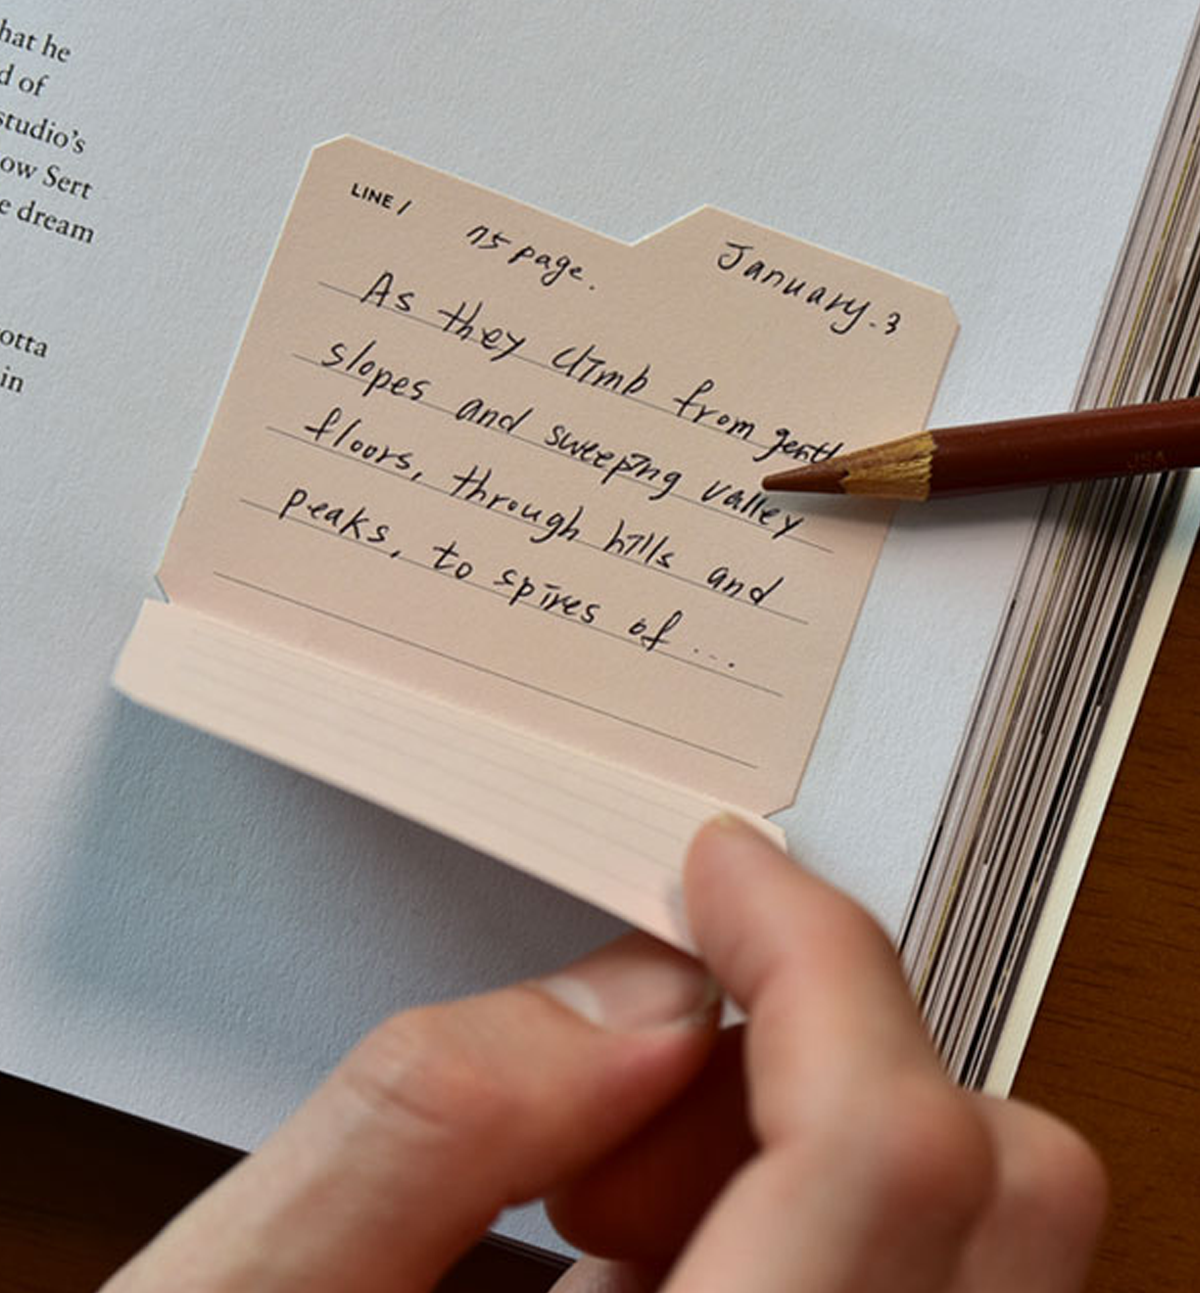 hat he
d of
studio's
ow Sert
e dream
otta
in
LINE /
75 page.
January. 3
As they climb from gentl
slopes and sweeping valley
floors, through hills and
peaks, to spires of ...
USA